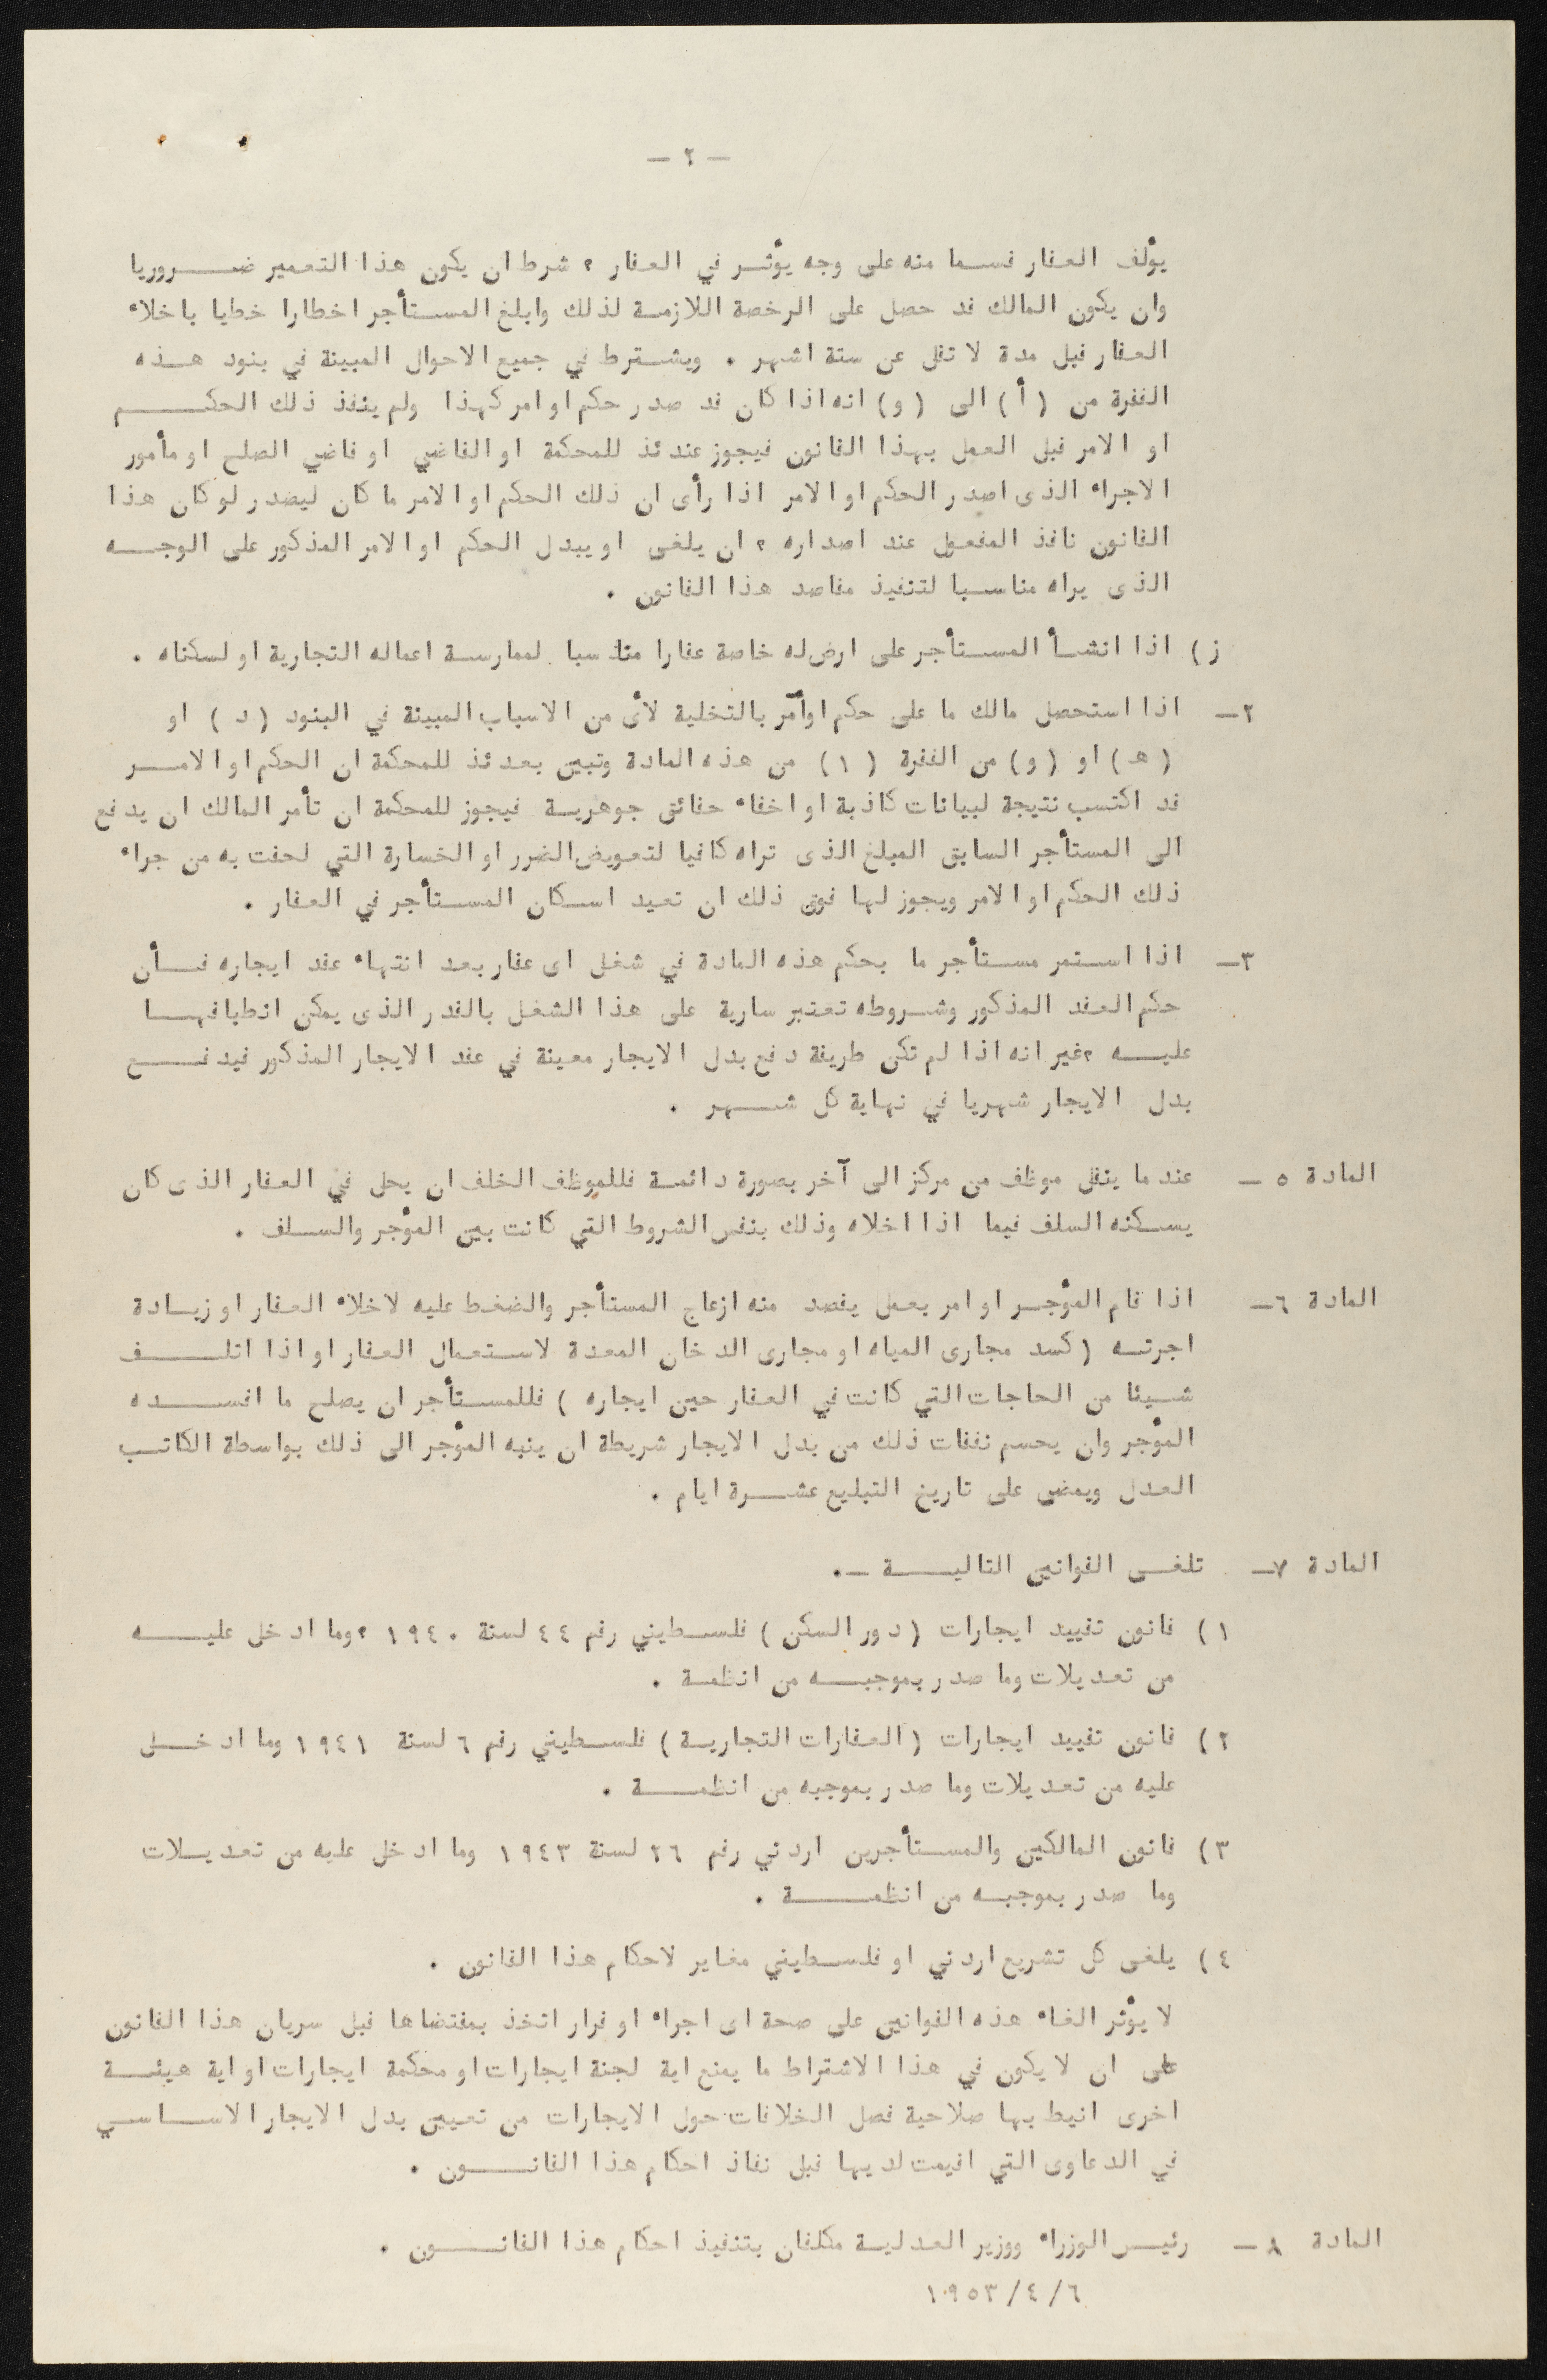 — ٢ —
يؤلف العقار قسما منه على وجه يؤثر في العقار ، شرط ان يكون هذا التعمير ضروريا
وان يكون المالك قد حصل على الرخصة اللازمة لذلك وابلغ المستأجر اخطارا خطيا باخلاء
العقار قبل مدة لا تقل عن ستة اشهر . ويشترط في جميع الاحوال المبينة في بنود هذه
الفقرة من (أ) الى (و) انه اذا كان قد صدر حكم او امر كهذا ولم ينفذ ذلك الحكم
او الامر قبل العمل بهذا القانون فيجوز عندئذ للمحكمة او القاضي او قاضي الصلح او مأمور
الاجراء الذى اصدر الحكم او الامر اذا رأى ان ذلك الحكم او الامر ما كان ليصدر لو كان هذا
القانون نافذ المفعول عند اصداره ، ان يلغى او يبدل الحكم او الامر المذكور على الوجه
الذى يراه مناسبا لتنفيذ مقاصد هذا القانون .
ز) اذا انشأ المستأجر على ارض له خاصة عقارا مناسبا لممارسة اعماله التجارية او لسكناه .
٢— اذا استحصل مالك ما على حكم او أمر بالتخلية لأى من الاسباب المبينة في البنود (د) او
(هـ) او (و) من الفقرة (١) من هذه المادة وتبين بعدئذ للمحكمة ان الحكم او الامر
قد اكتسب نتيجة لبيانات كاذبة او اخفاء حقائق جوهرية فيجوز للمحكمة ان تأمر المالك ان يدفع
الى المستأجر السابق المبلغ الذى تراه كافيا لتعويض الضرر او الخسارة التي لحقت به من جراء
ذلك الحكم او الامر ويجوز لها فوق ذلك ان تعيد اسكان المستأجر في العقار .
٣— اذا استمر مستأجر ما بحكم هذه المادة في شغل اى عقار بعد انتهاء عقد ايجاره فأن
حكم العقد المذكور وشروطه تعتبر سارية على هذا الشغل بالقدر الذى يمكن انطباقها
عليه ، غير انه اذا لم تكن طريقة دفع بدل الايجار معينة في عقد الايجار المذكور فيدفع
بدل الايجار شهريا في نهاية كل شهر .
المادة ٥ — عندما ينقل موظف من مركز الى آخر بصورة دائمة فللموظف الخلف ان يحل في العقار الذى كان
يسكنه السلف فيما اذا اخلاه وذلك بنفس الشروط التي كانت بين المؤجر والسلف .
المادة ٦— اذا قام المؤجر او امر بعمل يقصد منه ازعاج المستأجر والضغط عليه لاخلاء العقار او زيادة
اجرته (كسد مجارى المياه او مجارى الدخان المعدة لاستعمال العقار او اذا اتلف
شيئا من الحاجات التي كانت في العقار حين ايجاره ) فللمستأجر ان يصلح ما افسده
المؤجر وان يحسم نفقات ذلك من بدل الايجار شريطة ان ينبه المؤجر الى ذلك بواسطة الكاتب
العدل ويمضى على تاريخ التبليغ عشرة ايام .
المادة ٧— تلغى القوانين التالية —.
١ ) قانون تقييد ايجارات (دور السكن ) فلسطيني رقم ٤٤ لسنة ١٩٤٠ ، وما ادخل عليه
من تعديلات وما صدر بموجبه من انظمة .
٢ ) قانون تقييد ايجارات (العقارات التجارية ) فلسطيني رقم ٦ لسنة ١٩٤١ وما ادخل
عليه من تعديلات وما صدر بموجبه من انظمة .
٣ ) قانون المالكين والمستأجرين اردني رقم ٢٦ لسنة ١٩٤٣ وما ادخل عليه من تعديلات
وما صدر بموجبه من انظمة .
٤ ) يلغى كل تشريع اردني او فلسطيني مغاير لاحكام هذا القانون .
لا يؤثر الغاء هذه القوانين على صحة اى اجراء او قرار اتخذ بمقتضاها قبل سريان هذا القانون
على ان لا يكون في هذا الاشتراط ما يمنع اية لجنة ايجارات او محكمة ايجارات او اية هيئة
اخرى انيط بها صلاحية فصل الخلافات حول الايجارات من تعيين بدل الايجار الاساسي
في الدعاوى التي اقيمت لديها قبل نفاذ احكام هذا القانون .
المادة ٨ — رئيس الوزراء ووزير العدلية مكلفان بتنفيذ احكام هذا القانون .
٦/ ٤/ ١٩٥٣